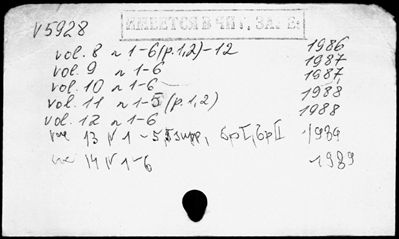 V5928
ИМЕЕТСЯ В ЧИТ. ЗАЛЕ
vol. 8 n 1-6 (p.1,2)-12 1986
vol. 9 n 1-6 1987
vol. 10 n 1-6 1987
vol. 11 n 1-5 (p.1,2) 1988
vol. 12 n 1-6 1988
13 N 1-5 supp, 6pI, 6pII 1989
14 N 1-6 1989